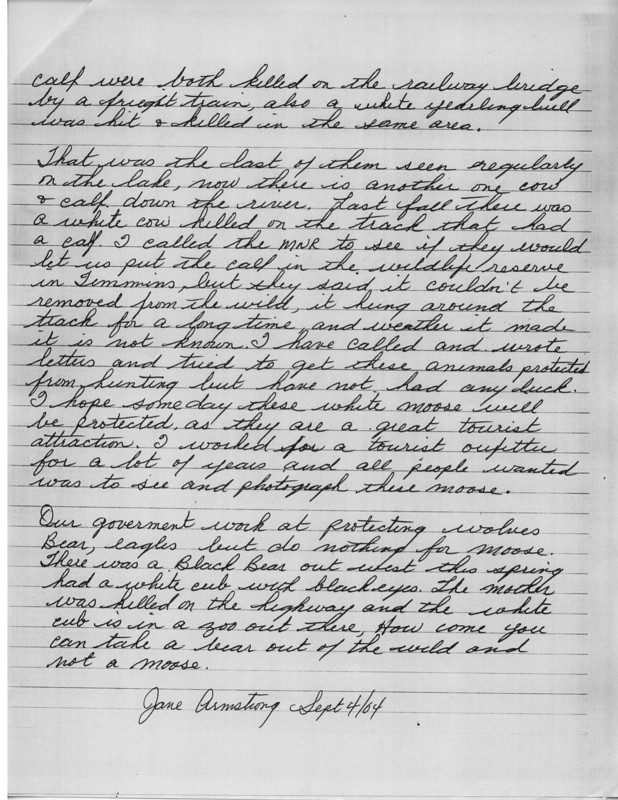 calf were both killed on the railway bridge
by a frieght train, also a white yearling bull
was hit & killed in the same area.
That was the last of them seen regularly
on the lake, now there is another one cow
& calf down the river. Last fall there was
a white cow killed on the track that had
a calf. I called the MNR to see if they would
let us put the calf in the wildlife reserve
in Timmins, but they said it couldn't be
removed from the wild, it hung around the
track for a long time and weather it made
it is not known. I have called and wrote
letters and tried to get these animals protected
from hunting but have not had any luck.
I hope someday these white moose will
be protected, as they are a great tourist
attraction. I worked for a tourist oufitter
for a lot of years and all people wanted
was to see and photograph these moose.
Our goverment work at protecting wolves
Bear, eagles but do nothing for moose.
There was a Black Bear out west this spring
had a white cub with black eyes. The mother
was killed on the highway and the white
cub is in a zoo out there, How come you
can take a bear out of the wild and
not a moose.
Jane Armstrong Sept 4/04